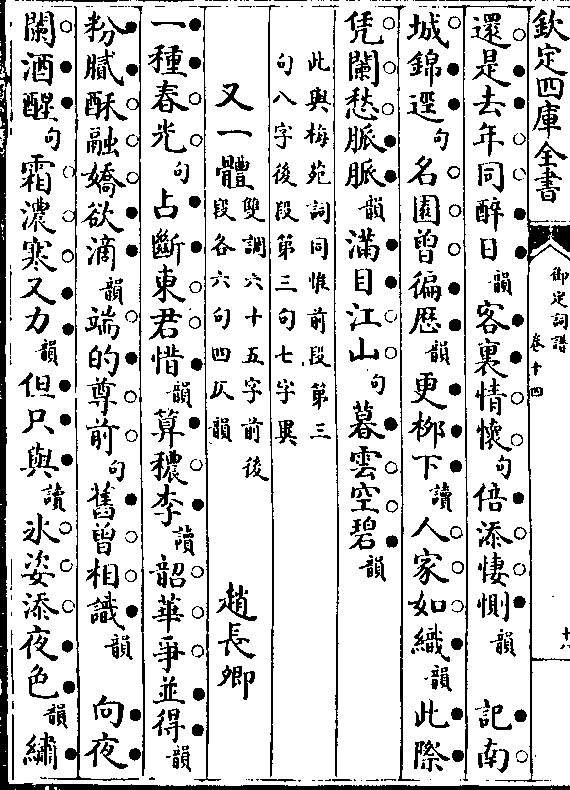 欽定四庫全書
御定詞譜
卷十四
十八
還是去年同醉日韻客裏情懷句倍添悽惻韻　記南
城錦逕句名園曾徧歷韻更栁下讀人家如織韻此際
凭闌愁脈脈韻滿目江山句暮雲空碧韻
此與梅苑詞同惟前段第三
句八字後段第三句七字異
又一體雙調六十五字前後
段各六句四仄韻　趙長卿
一種春光句占斷東君惜韻算穠李讀韶華爭並得韻
粉膩酥融嬌欲滴韻端的尊前句舊曾相識韻　向夜
闌酒醒句霜濃寒又力韻但只與讀氷姿添夜色韻繡